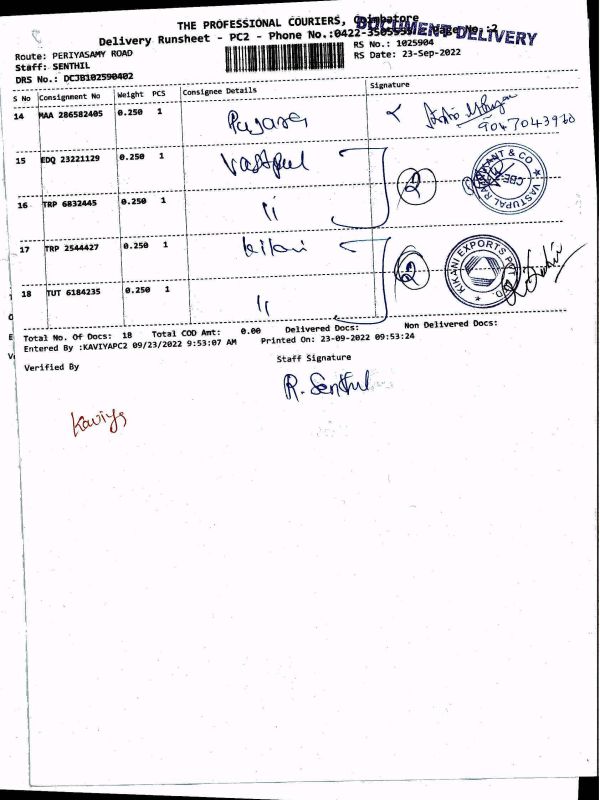 THE PROFESSIONAL COURIERS, Coimbatore
DOCUMENT DELIVERY
Delivery Runsheet - PC2 - Phone No.:0422-3505555 Page No.:2
Route: PERIYASAMY ROAD
RS No.: 1025904
Staff: SENTHIL
RS Date: 23-Sep-2022
DRS No.: DCJB102590402
S No Consignment No Weight PCS Consignee Details Signature
14 MAA 286582405 0.250 1
9047043960
15 EDQ 23221129 0.250 1 Vastpul
2
VASTUPAL RAJNIKANT & CO
CBE
16 TRP 6832445 0.250 1 11
17 TRP 2544427 0.250 1 kikani
2
KIKANI EXPORTS PVT LTD.
18 TUT 6184235 0.250 1 11
Total No. Of Docs: 18 Total COD Amt: 0.00 Delivered Docs: Non Delivered Docs:
Entered By :KAVIYAPC2 09/23/2022 9:53:07 AM Printed On: 23-09-2022 09:53:24
Verified By
Staff Signature
R. Senthil
Kaviya